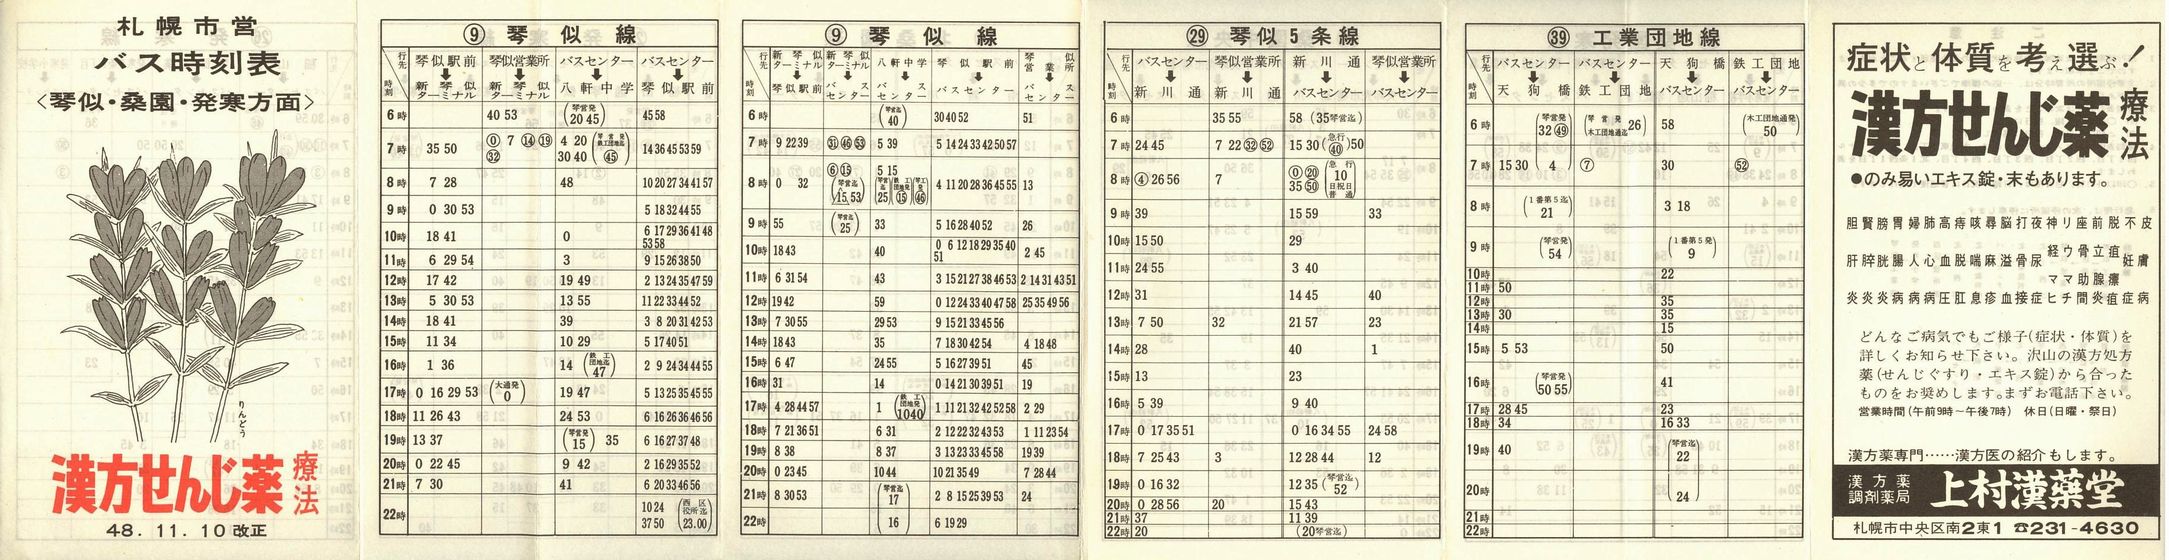 札幌市営
バス時刻表
<琴似・桑園・発寒方面>
りんどう
漢方せんじ薬 療法
48. 11. 10 改正
⑨ 琴似線
行先 時刻
琴似駅前 ➡ 新琴似ターミナル
琴似営業所 ➡ 新琴似ターミナル
バスセンター ➡ 八軒中学
バスセンター ➡ 琴似駅前
6時 40 53 (琴営発 20 45) 45 58
7時 35 50 ⓪ 7 ⑭ ⑲ ㉜ 4 20 30 40 (琴営発 鉄工団地迄 ㊺) 14 36 45 53 59
8時 7 28 48 10 20 27 34 41 57
9時 0 30 53 5 18 32 44 55
10時 18 41 0 6 17 29 36 41 48 53 58
11時 6 29 54 3 9 15 26 38 50
12時 17 42 19 49 2 13 24 35 47 59
13時 5 30 53 13 55 11 22 33 44 52
14時 18 41 39 3 8 20 31 42 53
15時 11 34 10 29 5 17 40 51
16時 1 36 14 (鉄工団地迄 47) 2 9 24 34 44 55
17時 0 16 29 53 (大通発 0) 19 47 5 13 25 35 45 55
18時 11 26 43 24 53 6 16 26 36 46 56
19時 13 37 (琴営発 15) 35 6 16 27 37 48
20時 0 22 45 9 42 2 16 29 35 52
21時 7 30 41 6 20 33 46 56
22時 10 24 37 50 (西区役所迄 23.00)
⑨ 琴似線
行先 時刻
新琴似ターミナル ➡ 琴似駅前
新琴似ターミナル ➡ バスセンター
八軒中学 ➡ バスセンター
琴似駅前 ➡ バスセンター
琴似営業所 ➡ バスセンター
6時 (琴営迄 40) 30 40 52 51
7時 9 22 39 ㉛ ㊻ 53 5 39 5 14 24 33 42 50 57
8時 0 32 ⑥ ⑮ (琴営迄 15 53) 5 15 (琴営迄 25) (鉄工団地発 ⑮) (琴工発 ㊻) 4 11 20 28 36 45 55 13
9時 55 (琴営迄 25) 33 5 16 28 40 52 26
10時 18 43 40 0 6 12 18 29 35 40 51 2 45
11時 6 31 54 43 3 15 21 27 38 46 53 2 14 31 43 51
12時 19 42 59 0 12 24 33 40 47 58 25 35 49 56
13時 7 30 55 29 53 9 15 21 33 45 56
14時 18 43 35 7 18 30 42 54 4 18 48
15時 6 47 24 55 5 16 27 39 51 45
16時 31 14 0 14 21 30 39 51 19
17時 4 28 44 57 1 (鉄工団地発 10 40) 1 11 21 32 42 52 58 2 29
18時 7 21 36 51 6 31 2 12 22 32 43 53 1 11 23 54
19時 8 38 8 37 3 13 23 33 45 58 19 39
20時 0 23 45 10 44 10 21 35 49 7 28 44
21時 8 30 53 (琴営迄 17) 2 8 15 25 39 53 24
22時 (16) 6 19 29
㉙ 琴似5条線
行先 時刻
バスセンター ➡ 新川通
琴似営業所 ➡ 新川通
新川通 ➡ バスセンター
琴似営業所 ➡ バスセンター
6時 35 55 58 (35琴営迄)
7時 24 45 7 22 ㉜ 52 15 30 (急行 ㊵) 50
8時 ④ 26 56 7 ⓪ ⑳ 35 50 (急行 10 日祝日普通)
9時 39 15 59 33
10時 15 50 29
11時 24 55 3 40
12時 31 14 45 40
13時 7 50 32 21 57 23
14時 28 40 1
15時 13 23
16時 5 39 9 40
17時 0 17 35 51 0 16 34 55 24 58
18時 7 25 43 3 12 28 44 12
19時 0 16 32 12 35 (琴営迄 52)
20時 0 28 56 20 15 43
21時 37 11 39
22時 20 (20琴営迄)
㊴ 工業団地線
行先 時刻
バスセンター ➡ 天狗橋
バスセンター ➡ 鉄工団地
天狗橋 ➡ バスセンター
鉄工団地 ➡ バスセンター
6時 (琴営発 32 ㊾) (琴営発 木工団地通 26) 58 (木工団地通発 50)
7時 15 30 4 ⑦ 30 52
8時 (1番第5迄 21) 3 18
9時 (琴営発 54) (1番第5発 9)
10時 22
11時 50
12時 35
13時 30 35
14時 15
15時 5 53 50
16時 (琴営発 50 55) 41
17時 28 45 23
18時 34 16 33
19時 40 (琴営迄 22
20時 24)
21時
22時
症状と体質を考え選ぶ!
漢方せんじ薬 療法
●のみ易いエキス錠・末もあります。
胆腎膀胃婦肺高痔咳尋脳打夜神リ座前脱不皮
肝膵胱腸人心血脱喘麻溢骨尿経ウ骨立疽妊膚
ママ助腺癰
炎炎炎病病病圧肛息疹血接症ヒチ間炎疽症病
どんなご病気でもご様子(症状・体質)を
詳しくお知らせ下さい。沢山の漢方処方
薬(せんじぐすり・エキス錠)から合った
ものをお奨めします。まずお電話下さい。
営業時間(午前9時〜午後7時) 休日(日曜・祭日)
漢方薬専門……漢方医の紹介もします。
漢方薬 調剤薬局 上村漢薬堂
札幌市中央区南2東1 ☎231-4630